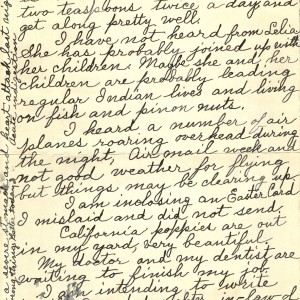 two teaspoons twice a day and
get along pretty well.
I have not heard from Lelia.
She has probably joined up with
her children. Maybe she and her
children are probably leading
regular Indian lives and living
on fish and pinon nuts.
I heard a number of air
planes roaring overhead during
the night. Air mail week and
not good weather for flying
but things may be clearing up.
I am inclosing an Easter Card
I mislaid and did not send.
California poppies are out
in my yard, very beautiful.
My doctor and my dentist are
waiting to finish my job.
I am intending to write
heart attack last